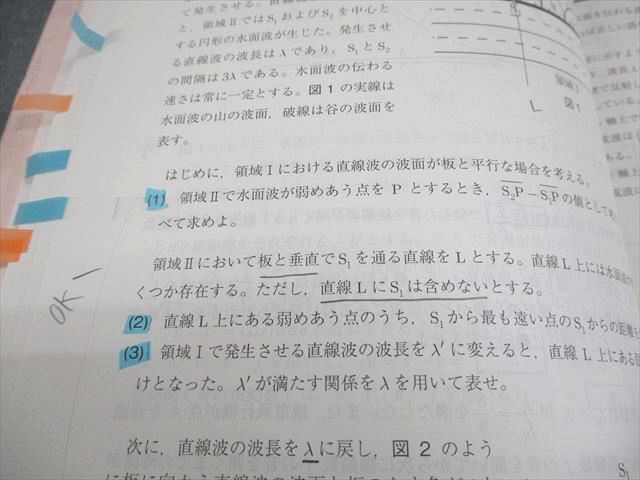 て発生させる。直線波
と，領域ⅡではS₁およびS₂を中心と
する円形の水面波が生じた。発生させ
る直線波の波長はλであり，S₁とS₂
の間隔は3λである。水面波の伝わる
速さは常に一定とする。図1の実線は
水面波の山の波面，破線は谷の波面を
表す。
領域Ⅰ
L
図1
はじめに，領域Ⅰにおける直線波の波面が板と平行な場合を考える。
(1) 領域Ⅱで水面波が弱めあう点を P とするとき，S₂P－S₁Pの値として考
べて求めよ。
領域Ⅱにおいて板と垂直でS₁を通る直線をLとする。直線L上には水面
くつか存在する。ただし，直線LにS₁は含めないとする。
OK
(2) 直線L上にある弱めあう点のうち，S₁から最も遠い点のS₁からの距離を
(3) 領域Ⅰで発生させる直線波の波長をλ′に変えると，直線L上にある
けとなった。λ′が満たす関係をλを用いて表せ。
次に，直線波の波長をλに戻し，図2のよう
S₁